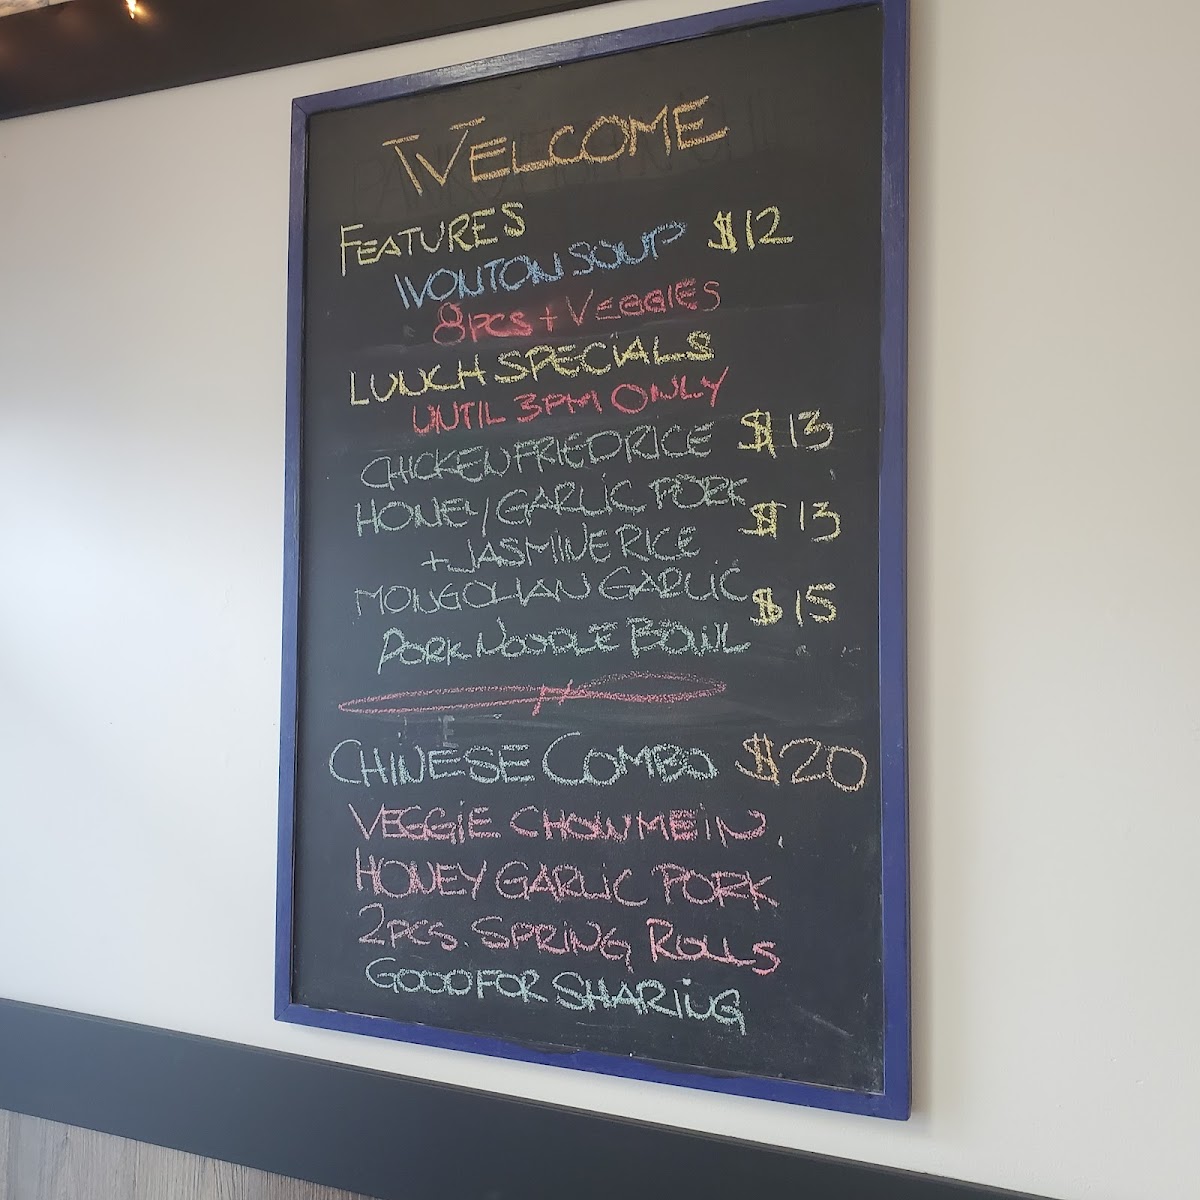 WELCOME
FEATURES
WONTON SOUP $12
8PCS + VEGGIES
LUNCH SPECIALS
UNTIL 3PM ONLY
CHICKEN FRIED RICE $13
HONEY GARLIC PORK $13
+ JASMINE RICE
MONGOLIAN GARLIC $15
PORK NOODLE BOWL
CHINESE COMBO $20
VEGGIE CHOWMEIN,
HONEY GARLIC PORK
2PCS. SPRING ROLLS
GOOD FOR SHARING